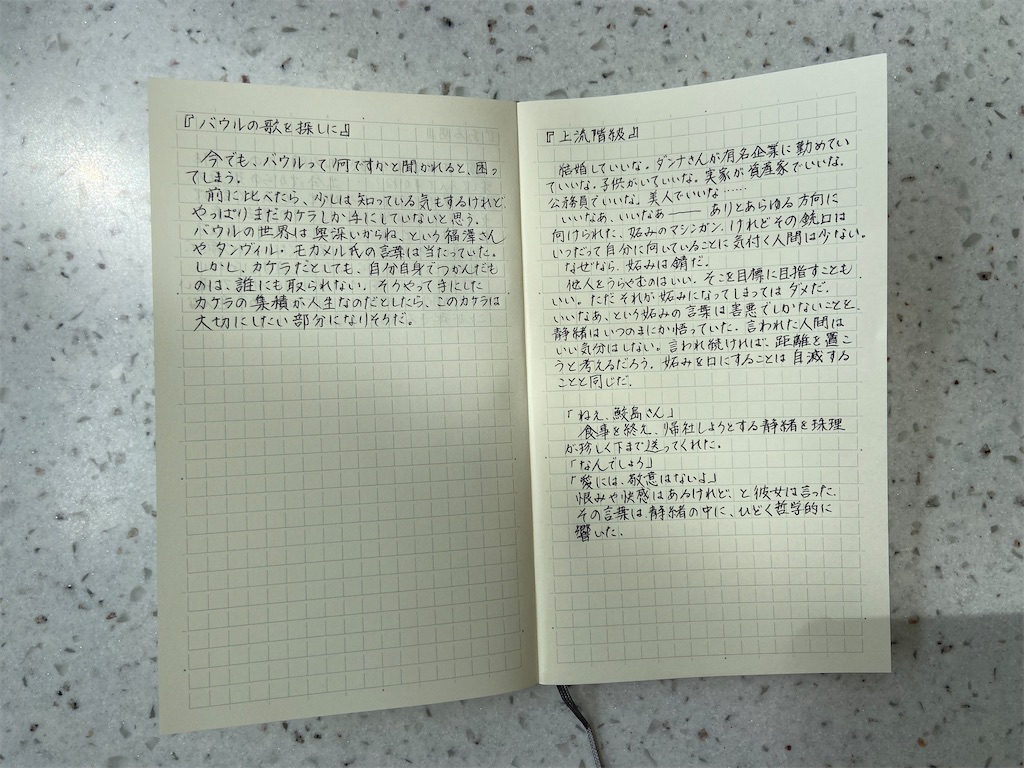 『バウルの歌を探しに』
今でも、バウルって何ですかと聞かれると、困っ
てしまう。
前に比べたら、少しは知っている気もするけれど、
やっぱりまだカケラしか手にしていないと思う。
バウルの世界は奥深いからね、という福澤さん
やタンヴィル・モカメル氏の言葉は当たっていた。
しかし、カケラだとしても、自分自身でつかんだも
のは、誰にも取られない。そうやって手にした
カケラの集積が人生なのだとしたら、このカケラは
大切にしたい部分になりそうだ。
『上流階級』
結婚していいな。ダンナさんが有名企業に勤めてい
ていいな。子供がいていいな。実家が資産家でいいな。
公務員でいいな。美人でいいな……
いいなあ、いいなあ―― ありとあらゆる方向に
向けられた、妬みのマシンガン。けれどその銃口は
いつだって自分に向いていることに気付く人間は少ない。
なぜなら、妬みは錆だ。
他人をうらやむのはいい。そこを目標に目指すことも
いい。ただそれが妬みになってしまってはダメだ。
いいなあ、という妬みの言葉は害悪でしかないことを、
静緒はいつのまにか悟っていた。言われた人間は
いい気分はしない。言われ続ければ、距離を置こ
うと考えるだろう。妬みを口にすることは自滅する
ことと同じだ。
「ねえ、鮫島さん」
食事を終え、帰社しようとする静緒を珠理
が珍しく下まで送ってくれた。
「なんでしょう」
「愛には、敬意はないよ」
恨みや快感はあるけれど、と彼女は言った。
その言葉は静緒の中に、ひどく哲学的に
響いた。